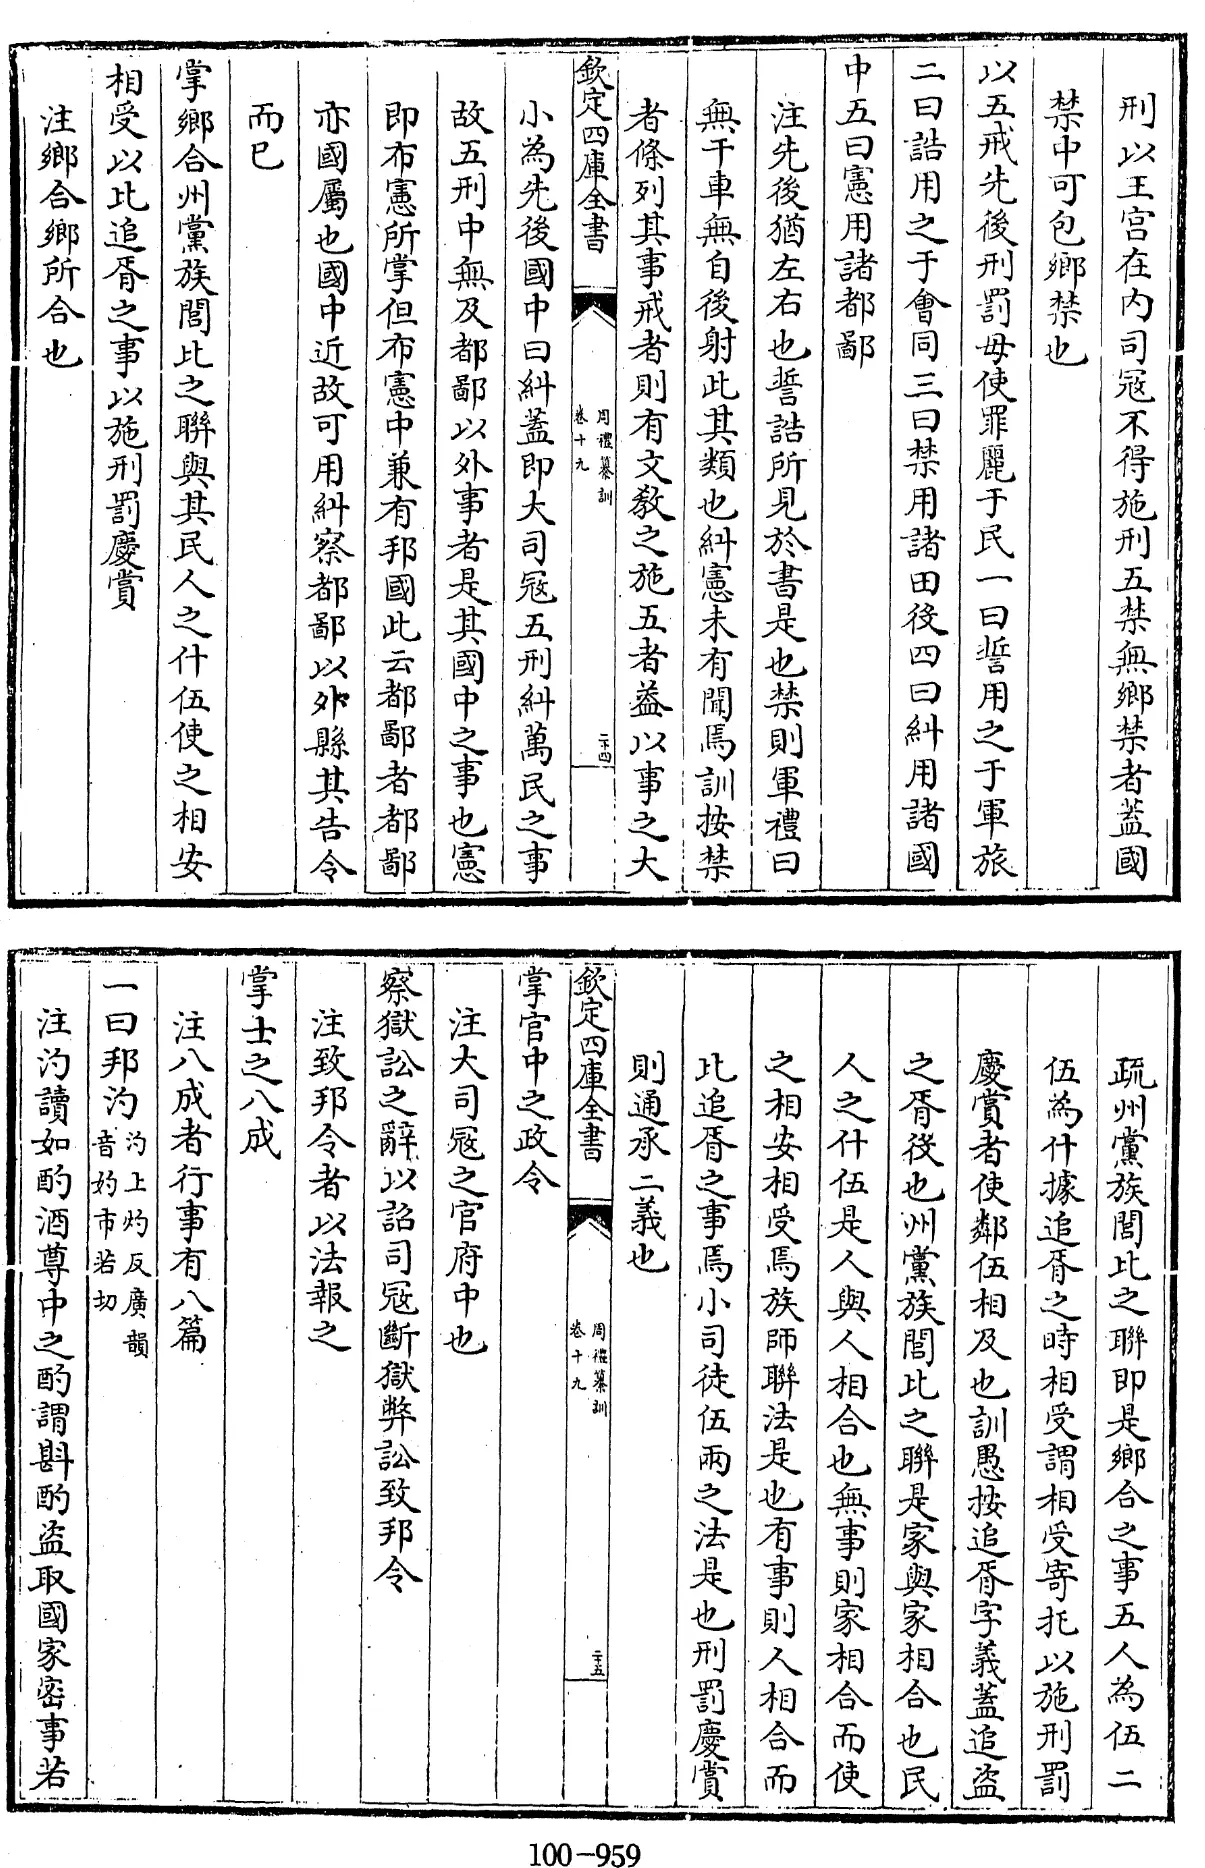 刑以王宫在内司冦不得施刑五禁無鄉禁者葢國
禁中可包鄉禁也
以五戒先後刑罰毋使罪麗于民一曰誓用之于軍旅
二曰誥用之于會同三曰禁用諸田役四曰糾用諸國
中五曰憲用諸都鄙
注先後猶左右也誓誥所見於書是也禁則軍禮曰
無干車無自後射此其類也糾憲未有聞焉訓按禁
者條列其事戒者則有文教之施五者葢以事之大
欽定四庫全書
周禮纂訓
卷十九
二十四
小為先後國中曰糾葢即大司冦五刑糾萬民之事
故五刑中無及都鄙以外事者是其國中之事也憲
即布憲所掌但布憲中兼有邦國此云都鄙者都鄙
亦國屬也國中近故可用糾察都鄙以外縣其告令
而已
掌鄉合州黨族閭比之聯與其民人之什伍使之相安
相受以比追胥之事以施刑罰慶賞
注鄉合鄉所合也
疏州黨族閭比之聯即是鄉合之事五人為伍二
伍為什據追胥之時相受謂相受寄托以施刑罰
慶賞者使鄰伍相及也訓愚按追胥字義蓋追盗
之胥役也州黨族閭比之聯是家與家相合也民
人之什伍是人與人相合也無事則家相合而使
之相安相受焉族師聯法是也有事則人相合而
比追胥之事焉小司徒伍兩之法是也刑罰慶賞
則通承二義也
欽定四庫全書
周禮纂訓
卷十九
二十五
掌官中之政令
注大司冦之官府中也
察獄訟之辭以詔司冦斷獄弊訟致邦令
注致邦令者以法報之
掌士之八成
注八成者行事有八篇
一曰邦汋汋上灼反廣韻
音妁市若切
注汋讀如酌酒尊中之酌謂斟酌盗取國家密事若
100-959